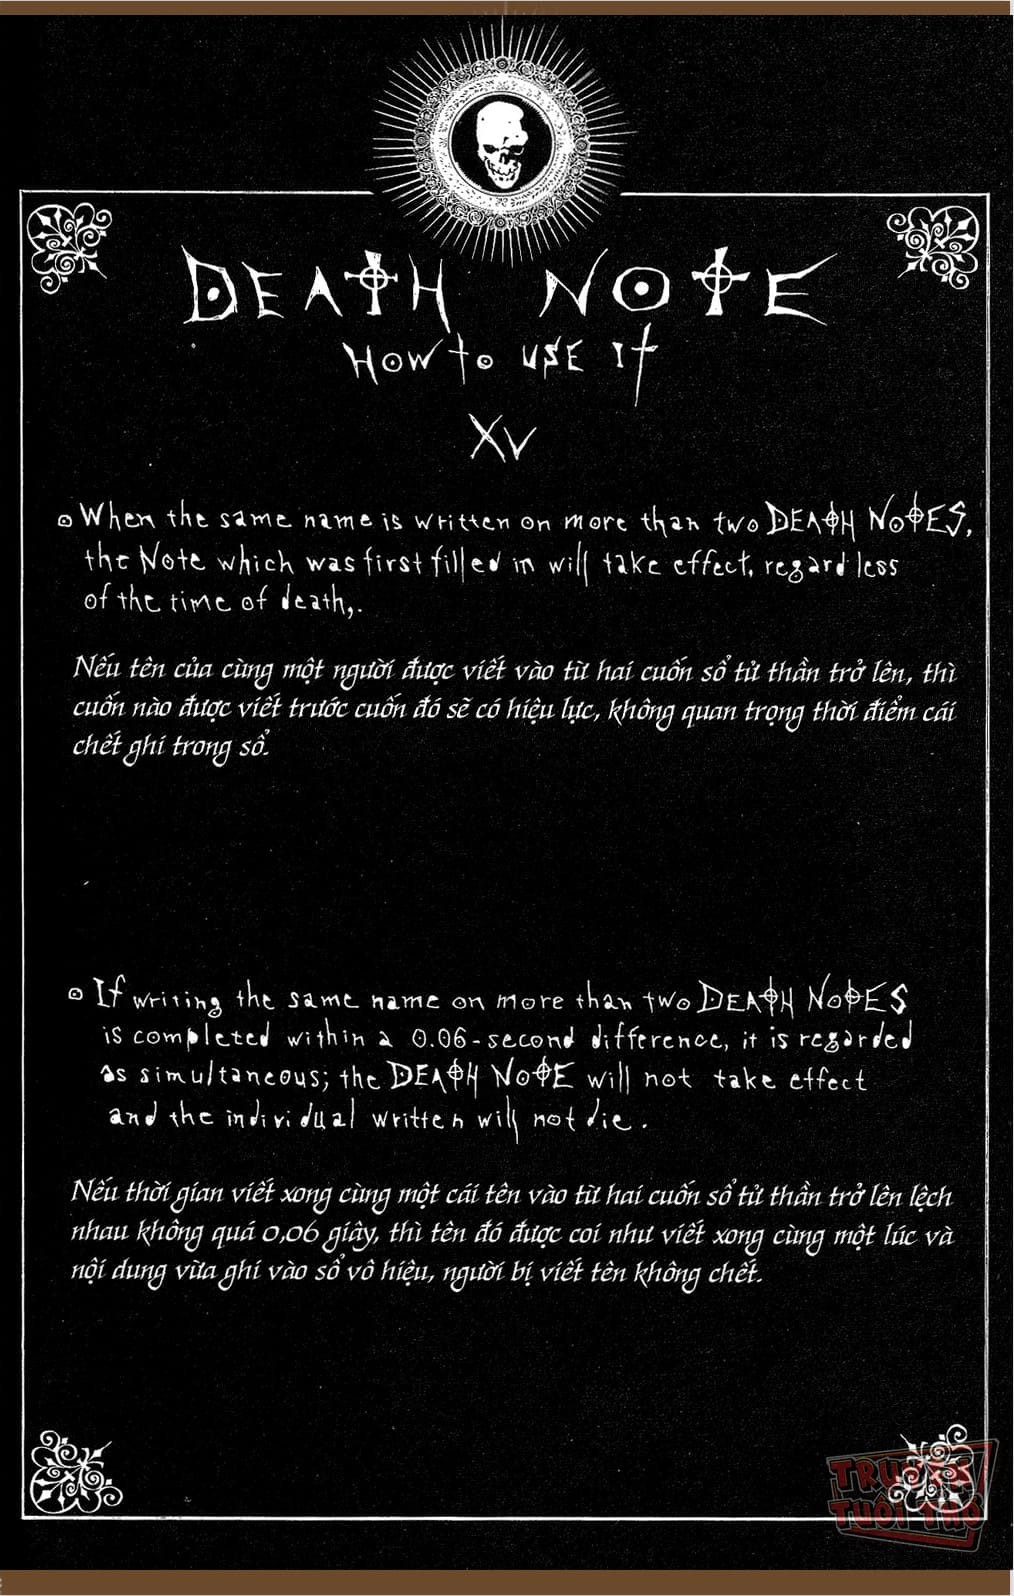 DEATH NOTE
HOW to USE It
XV
When the same name is written on more than two DEATH NOTES,
the Note which was first filled in will take effect, regardless
of the time of death,.
Nếu tên của cùng một người được viết vào từ hai cuốn sổ tử thần trở lên, thì
cuốn nào được viết trước cuốn đó sẽ có hiệu lực, không quan trọng thời điểm cái
chết ghi trong sổ.
If writing the same name on more than two DEATH NOTES
is completed within a 0.06-second difference, it is regarded
as simultaneous; the DEATH NOTE will not take effect
and the individual written will not die.
Nếu thời gian viết xong cùng một cái tên vào từ hai cuốn sổ tử thần trở lên lệch
nhau không quá 0,06 giây, thì tên đó được coi như viết xong cùng một lúc và
nội dung vừa ghi vào sổ vô hiệu, người bị viết tên không chết.
TRUYỆN
TUỔI THƠ